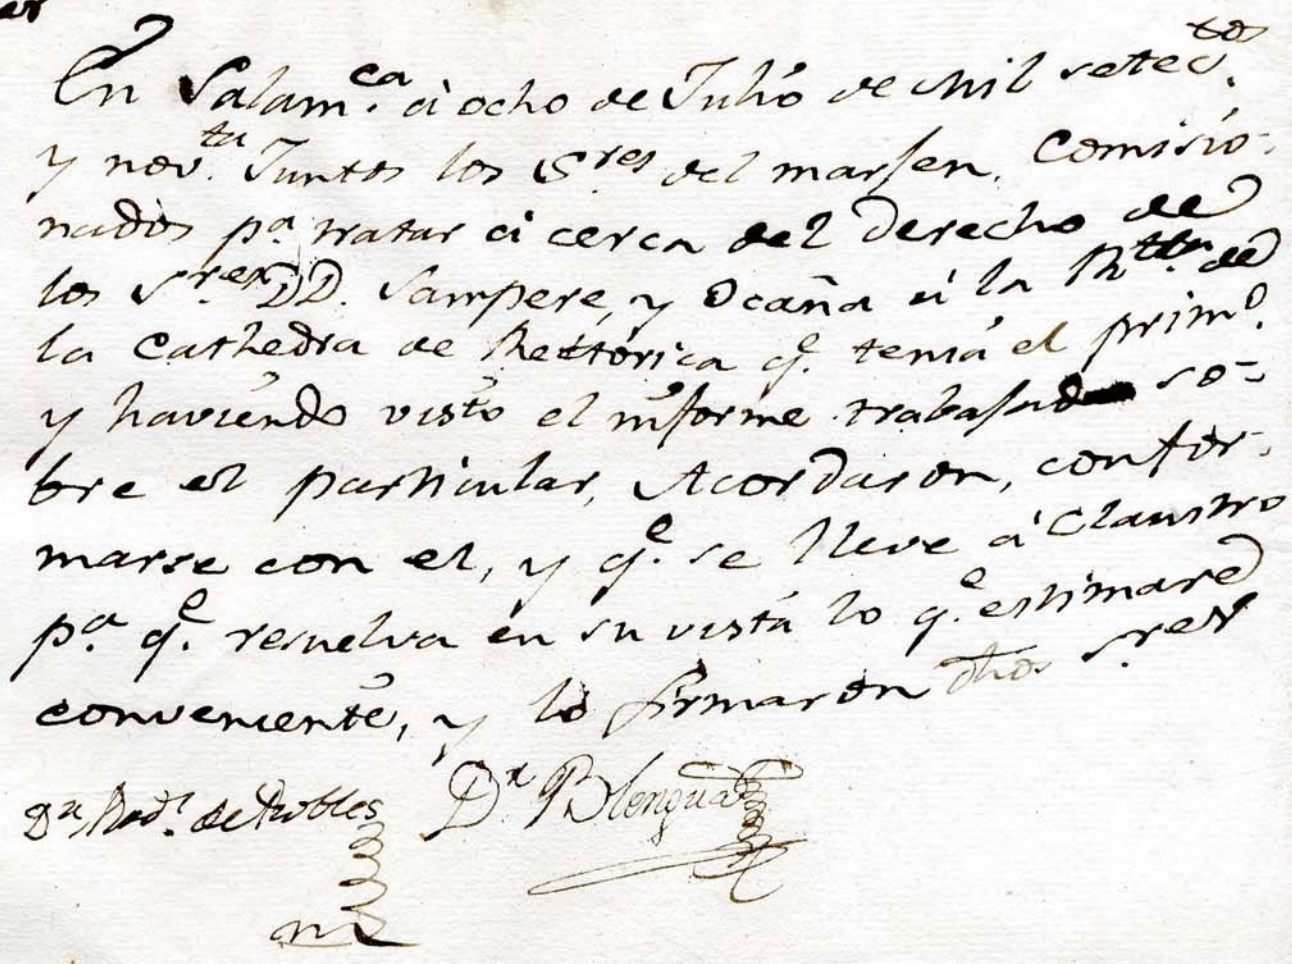 En Salam.ca à ocho de Julio de mil setec.tos
y nov.ta Juntos los S.res del marjen, Comisio-
nados p.a tratar á cerca del derecho de
los S.res DD. Sampere, y Ocaña á la de
la Cathedra de Rettorica q.e tenia el prim.o
y haviendo visto el informe trabajado so-
bre el particular, Acordaron, confor-
marse con el, y q.e se lleve á Claustro
p.a q.e resuelva en su vista lo q.e estimare
conveniente, y lo firmaron dhos S.res
D.r Rod. de Robles D.r Blengua